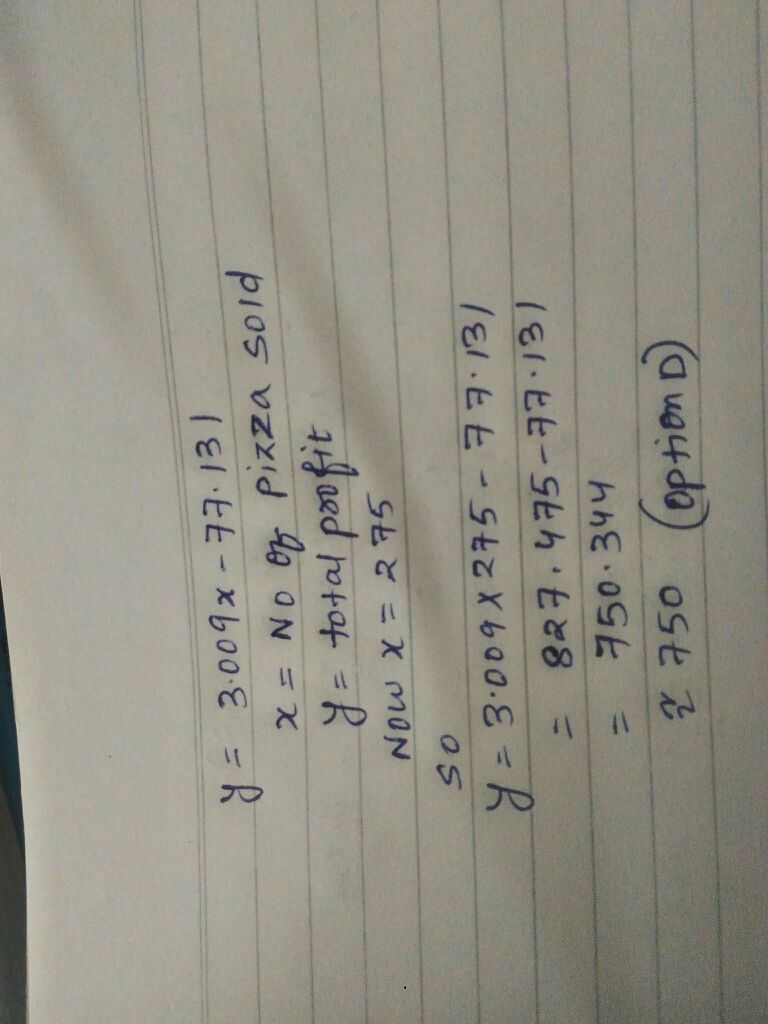 y = 3.009x - 77.131
x = No of pizza sold
y = total profit
Now x = 275
so
y = 3.009 X 275 - 77.131
= 827.475 - 77.131
= 750.344
≈ 750 (option D)